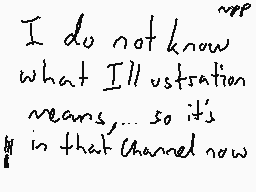 npp
I do not know
what Illustration
means,... so it's
in that channel now